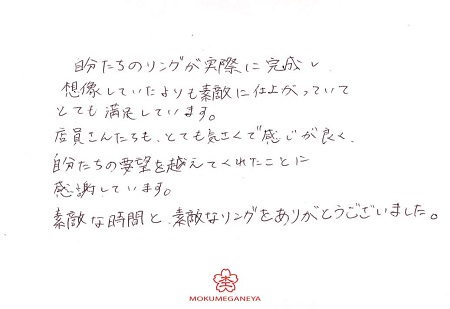 自分たちのリングが実際に完成し
想像していたよりも素敵に仕上がっていて
とても満足しています。
店員さんたちも、とても気さくで感じが良く、
自分たちの要望を越えてくれたことに
感謝しています。
素敵な時間と、素敵なリングをありがとうございました。
杢
MOKUMEGANEYA